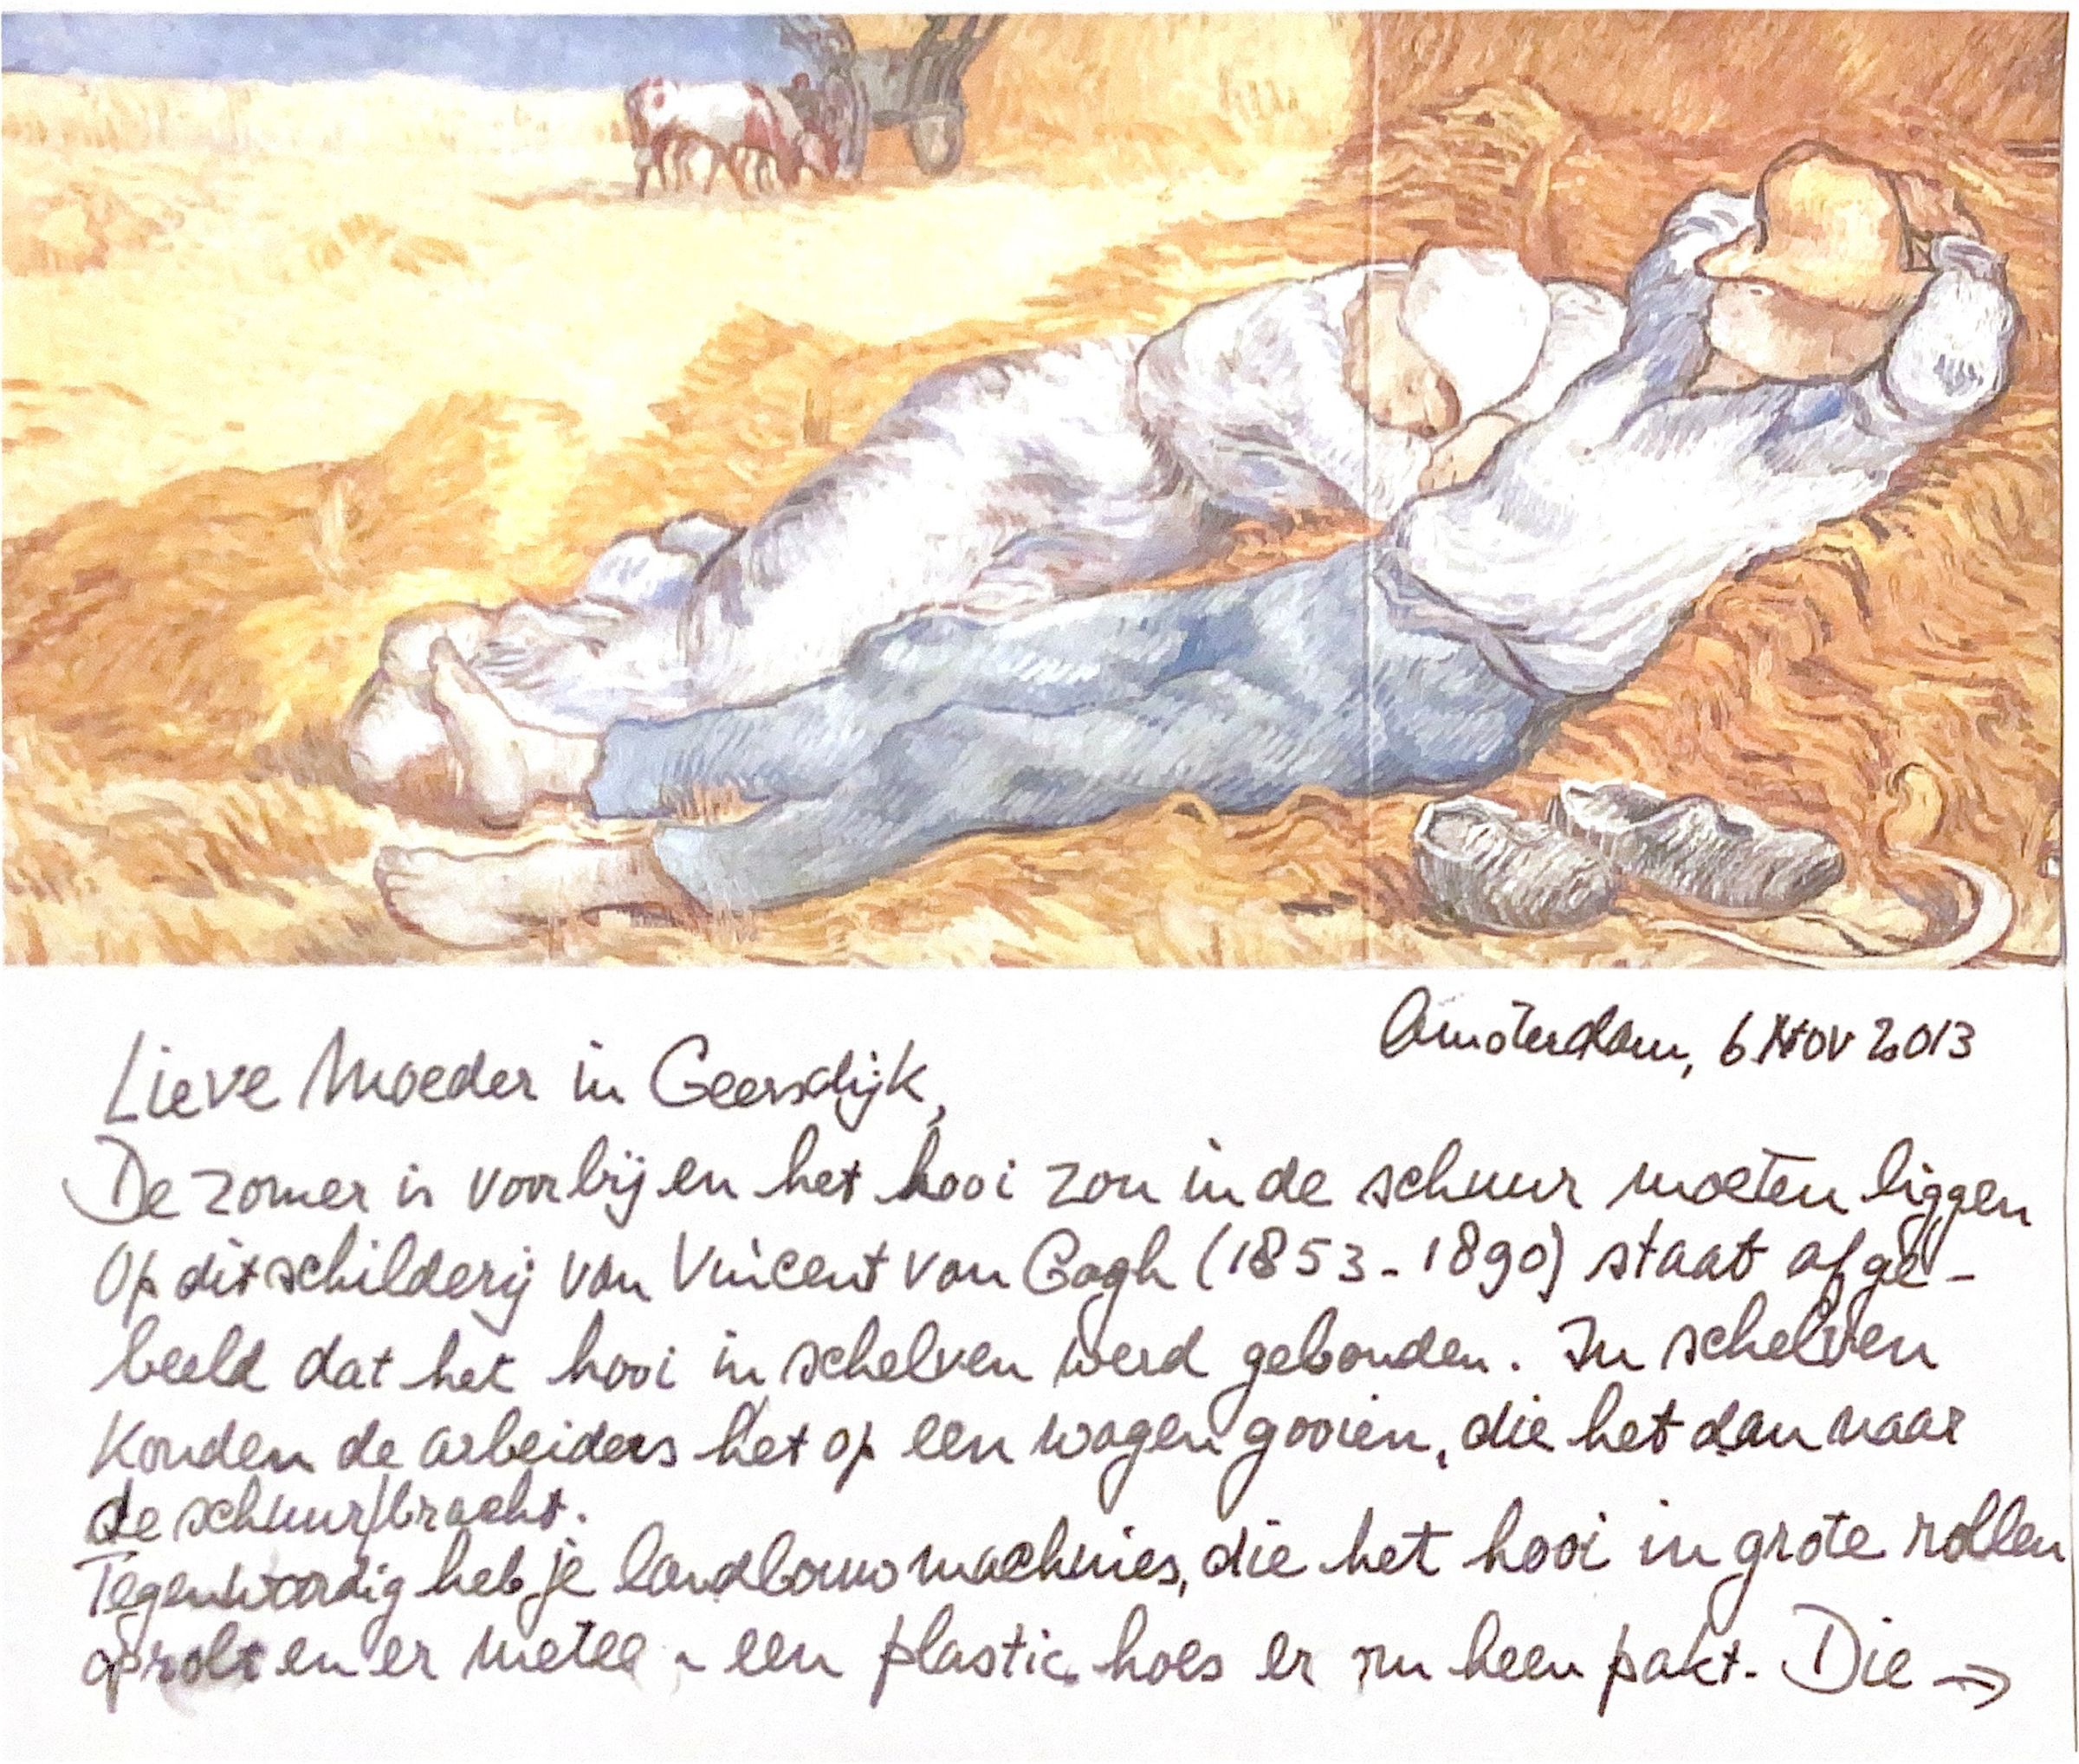 Amsterdam, 6 Nov 2013
Lieve Moeder in Geersdijk,
De zomer is voorbij en het hooi zou in de schuur moeten liggen
Op dit schilderij van Vincent van Gogh (1853-1890) staat afge-
beeld dat het hooi in schelven werd gebonden. In schelven
konden de arbeiders het op een wagen gooien, die het dan naar
de schuur/bracht.
Tegenwoordig heb je landbouwmachines, die het hooi in grote rollen
oprolt en er een plastic hoes er om heen pakt. Die →